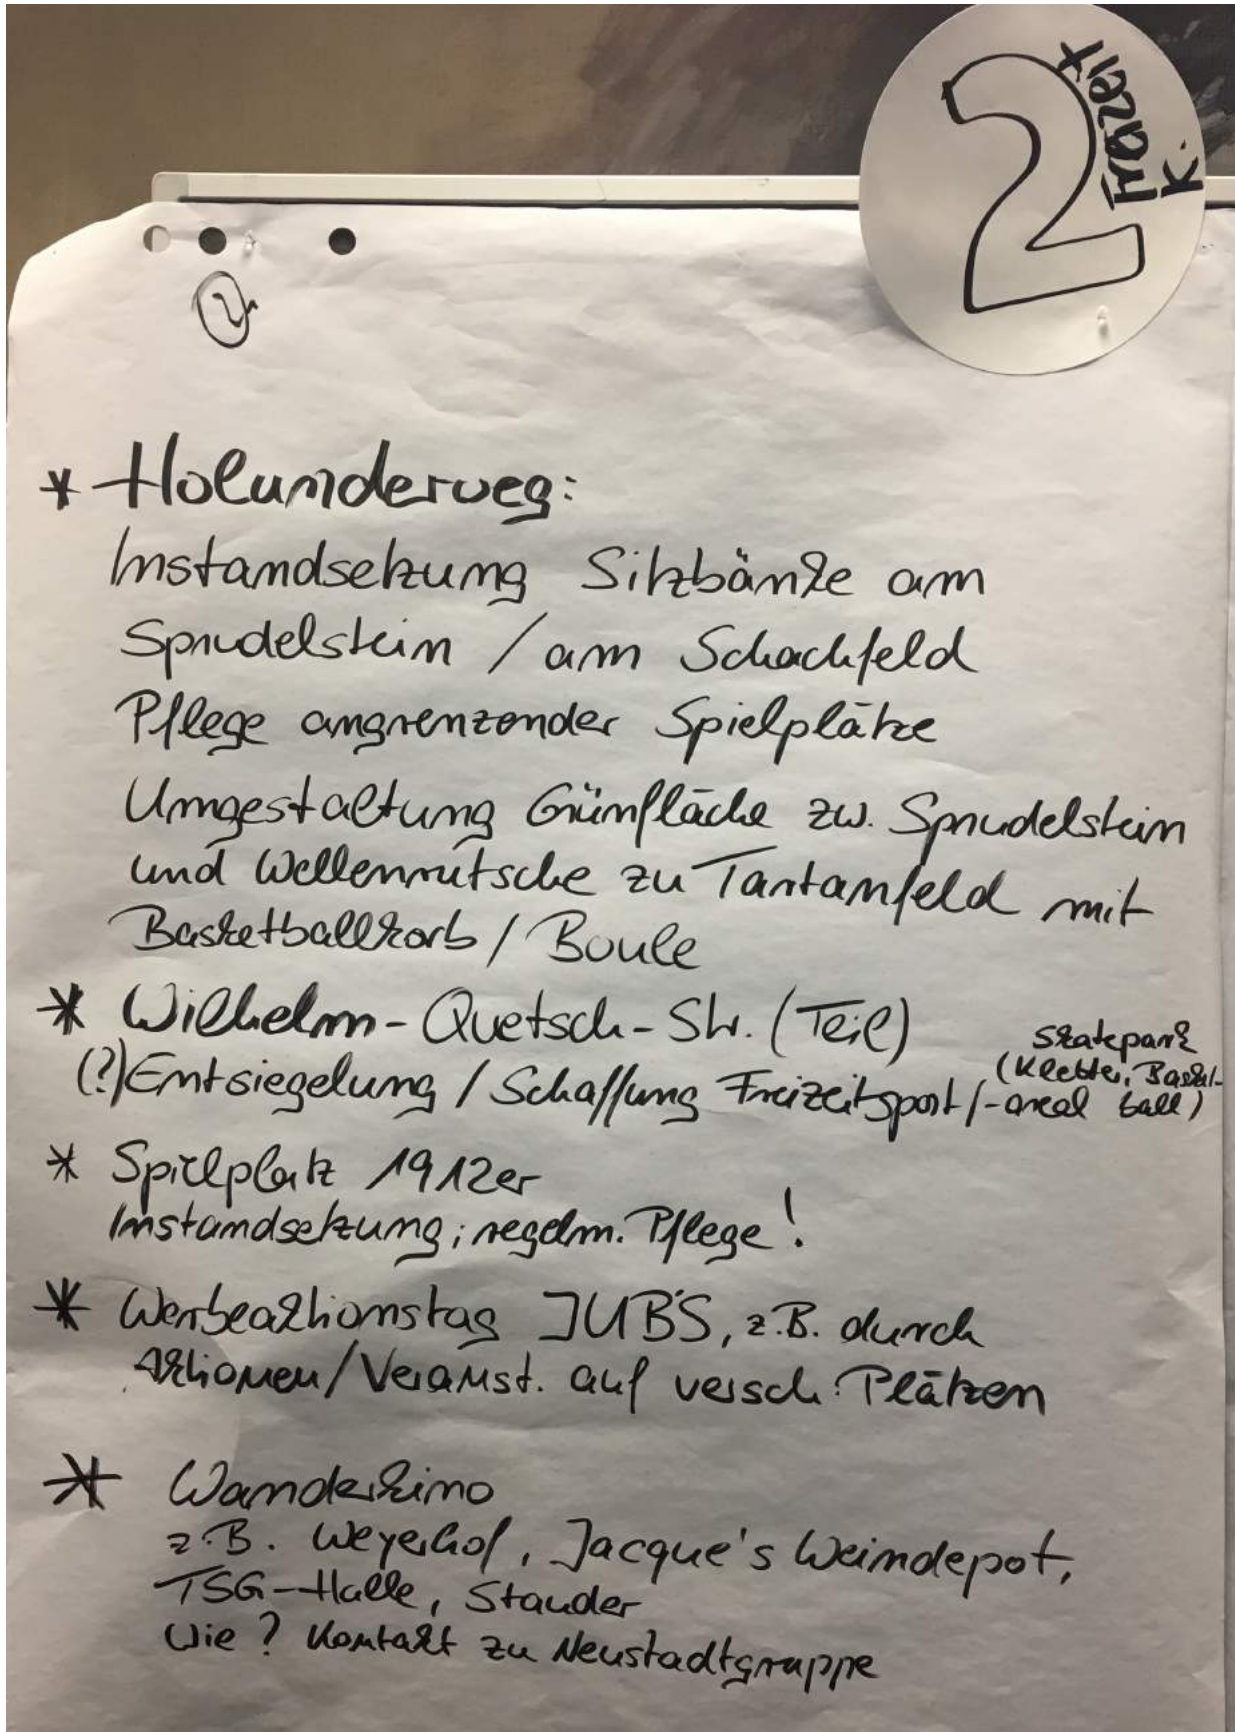 2
K.
2
* Holunderweg:
Instandsetzung Sitzbänke am
Sprudelstein / am Schachfeld
Pflege angrenzender Spielplätze
Umgestaltung Grünfläche zw. Sprudelstein
und Wellenrutsche zu Tartanfeld mit
Basketballkorb / Boule
* Wilhelm-Quetsch-Str. (Teil)
Skatepark
(Kletter, Basket-
(?) Entsiegelung / Schaffung Freizeitsport/-areal ball)
* Spielplatz 1912er
Instandsetzung; regelm. Pflege!
* Werbeaktionstag JUB'S, z.B. durch
Aktionen/Veranst. auf versch. Plätzen
* Wanderkino
z.B. Weyerhof, Jacque's Weindepot,
TSG-Halle, Stauder
Wie? Kontakt zu Neustadtgruppe